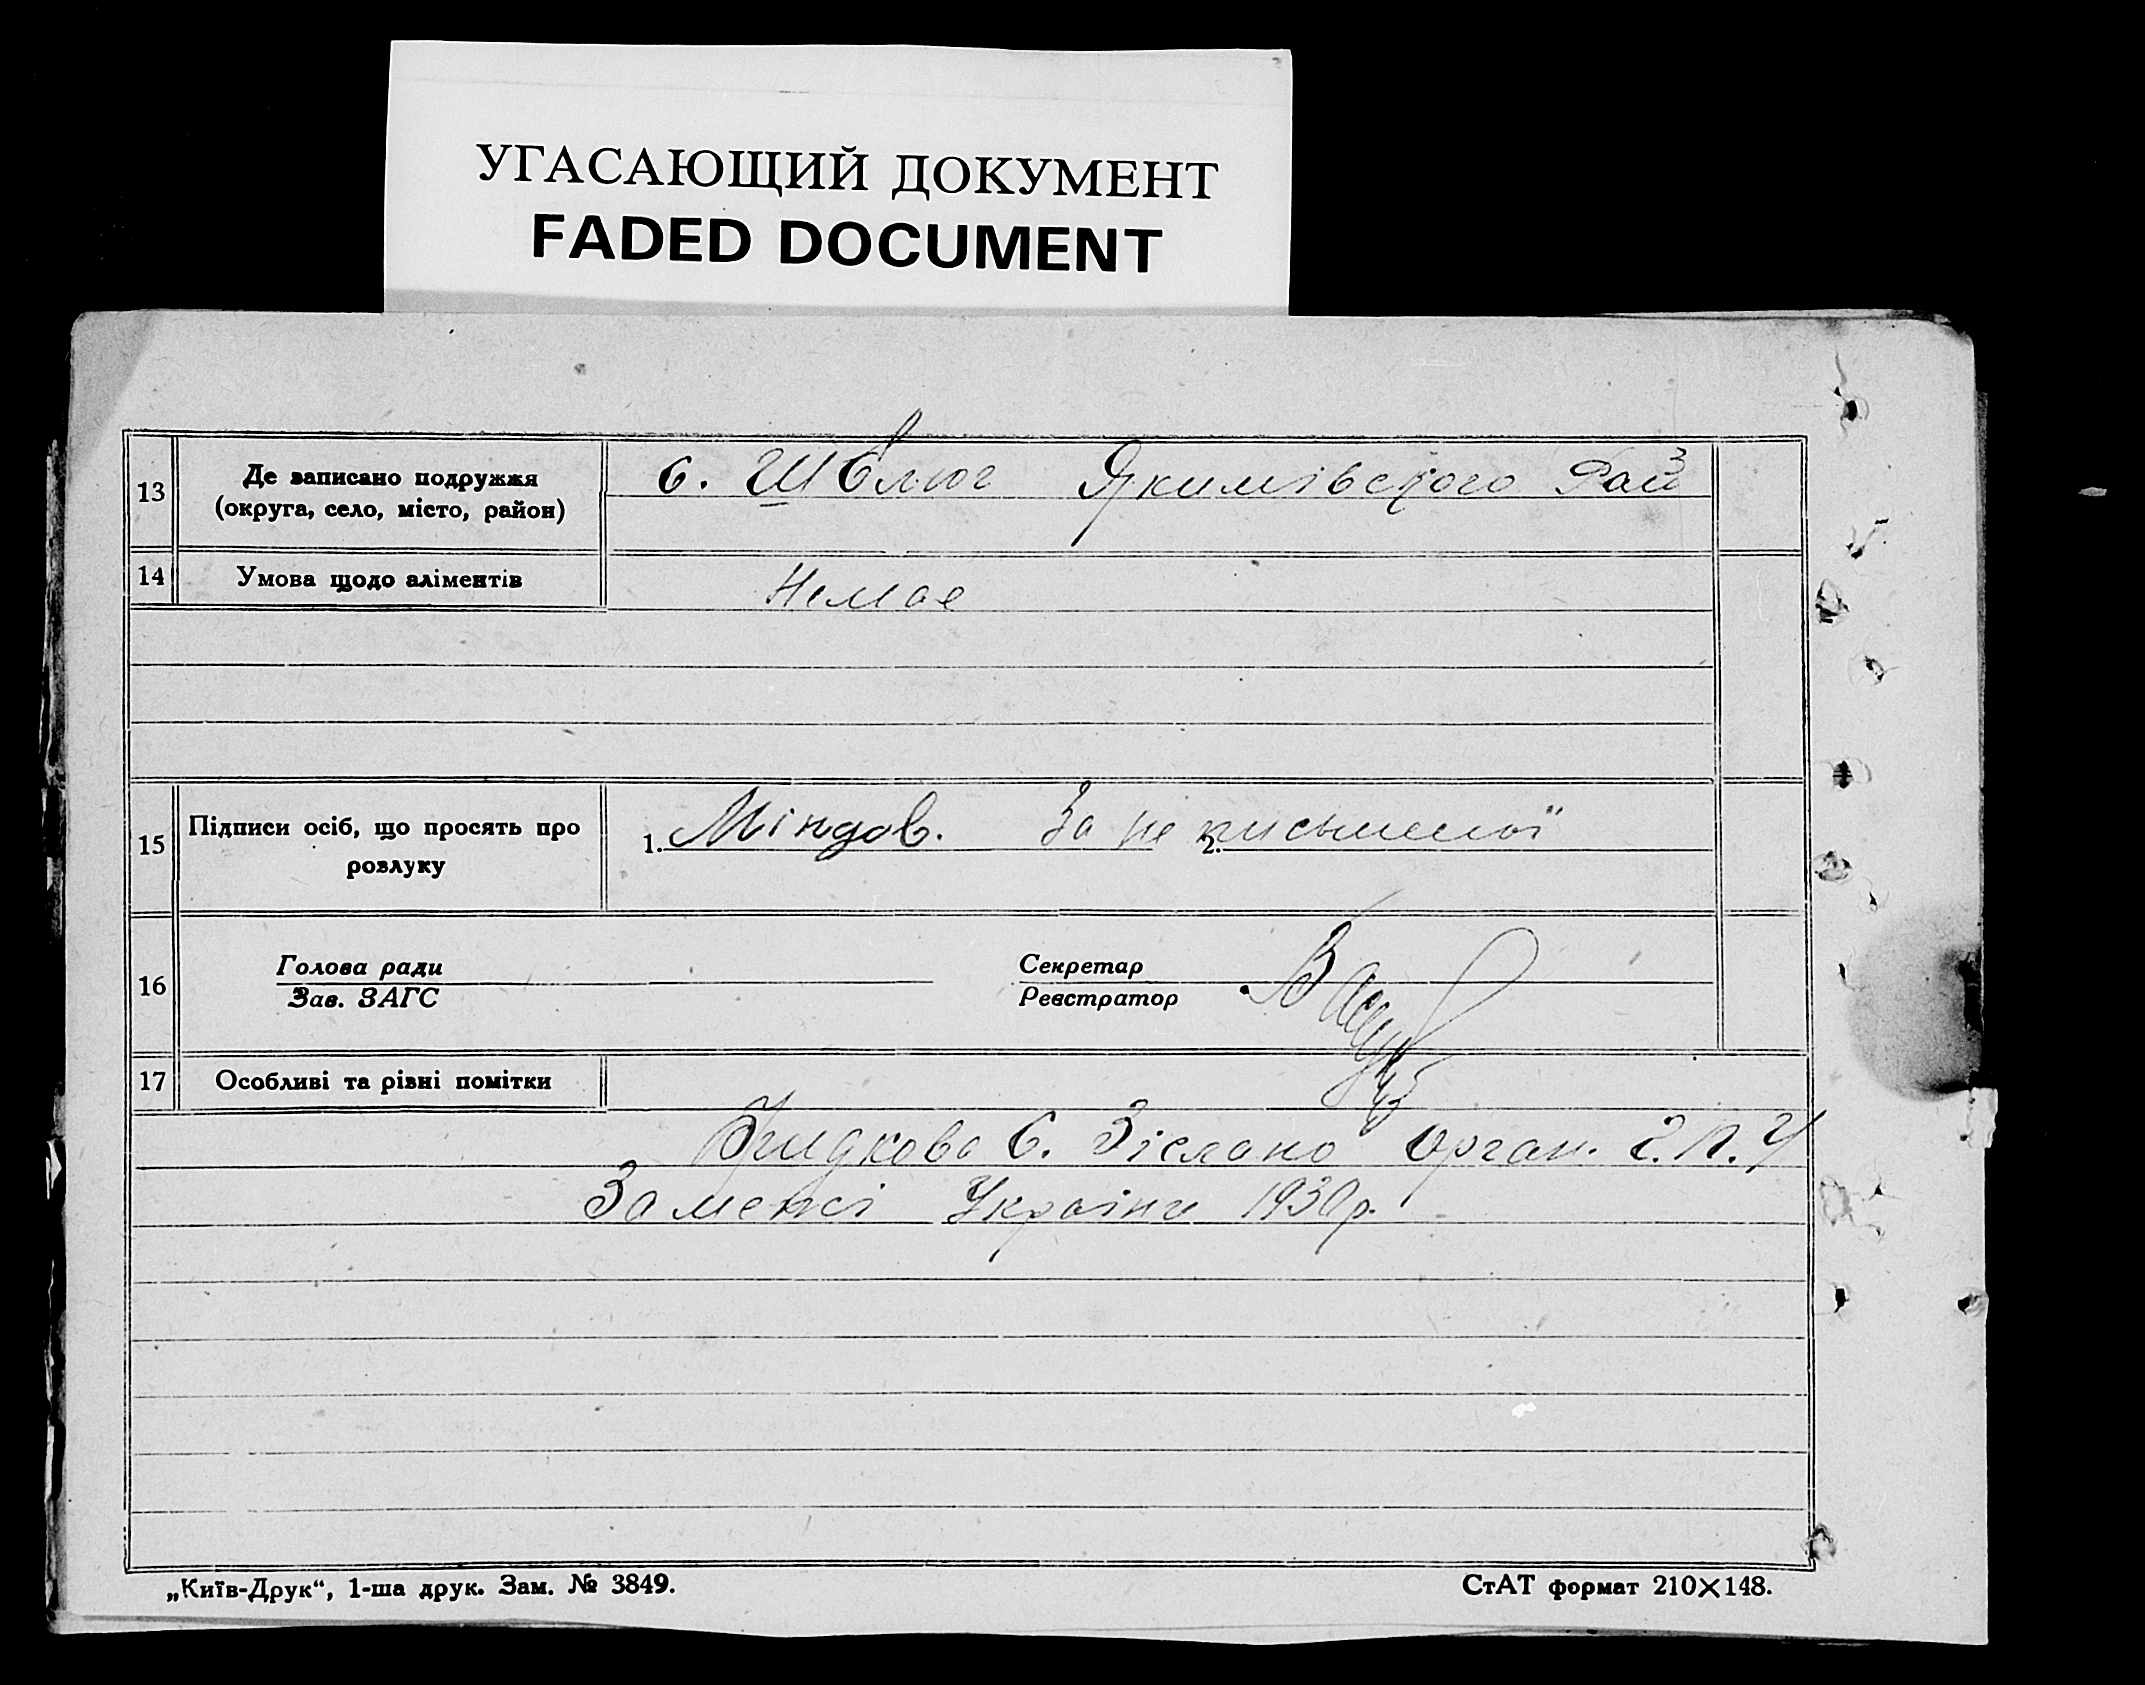 УГАСАЮЩИЙ ДОКУМЕНТ
FADED DOCUMENT
13 Де записано подружжя (округа, село, місто, район) с. Якимівського Рай
14 Умова щодо аліментів Немає
15 Підписи осіб, що просять про розлуку 1. Міндов. За неписьменої 2.
16 Голова ради Зав. ЗАГС Секретар Реєстратор
17 Особливі та різні помітки
С. Зіслано орган. Г.П.У
За межі України 1930р.
„Київ-Друк“, 1-ша друк. Зам. № 3849.
СтАТ формат 210×148.